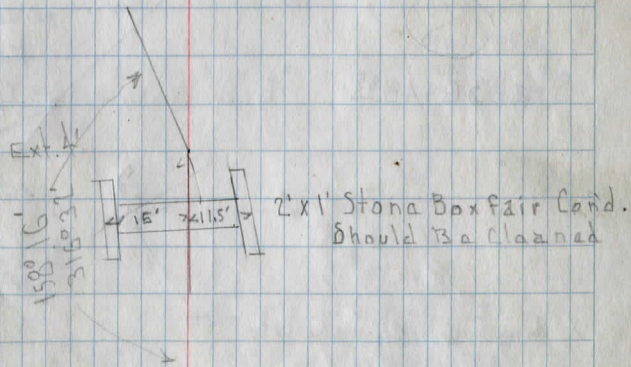 Ext. L
158°16'
316°32'
15' 11.5'
2'x1' Stone Box Fair Cond.
Should Be Cleaned